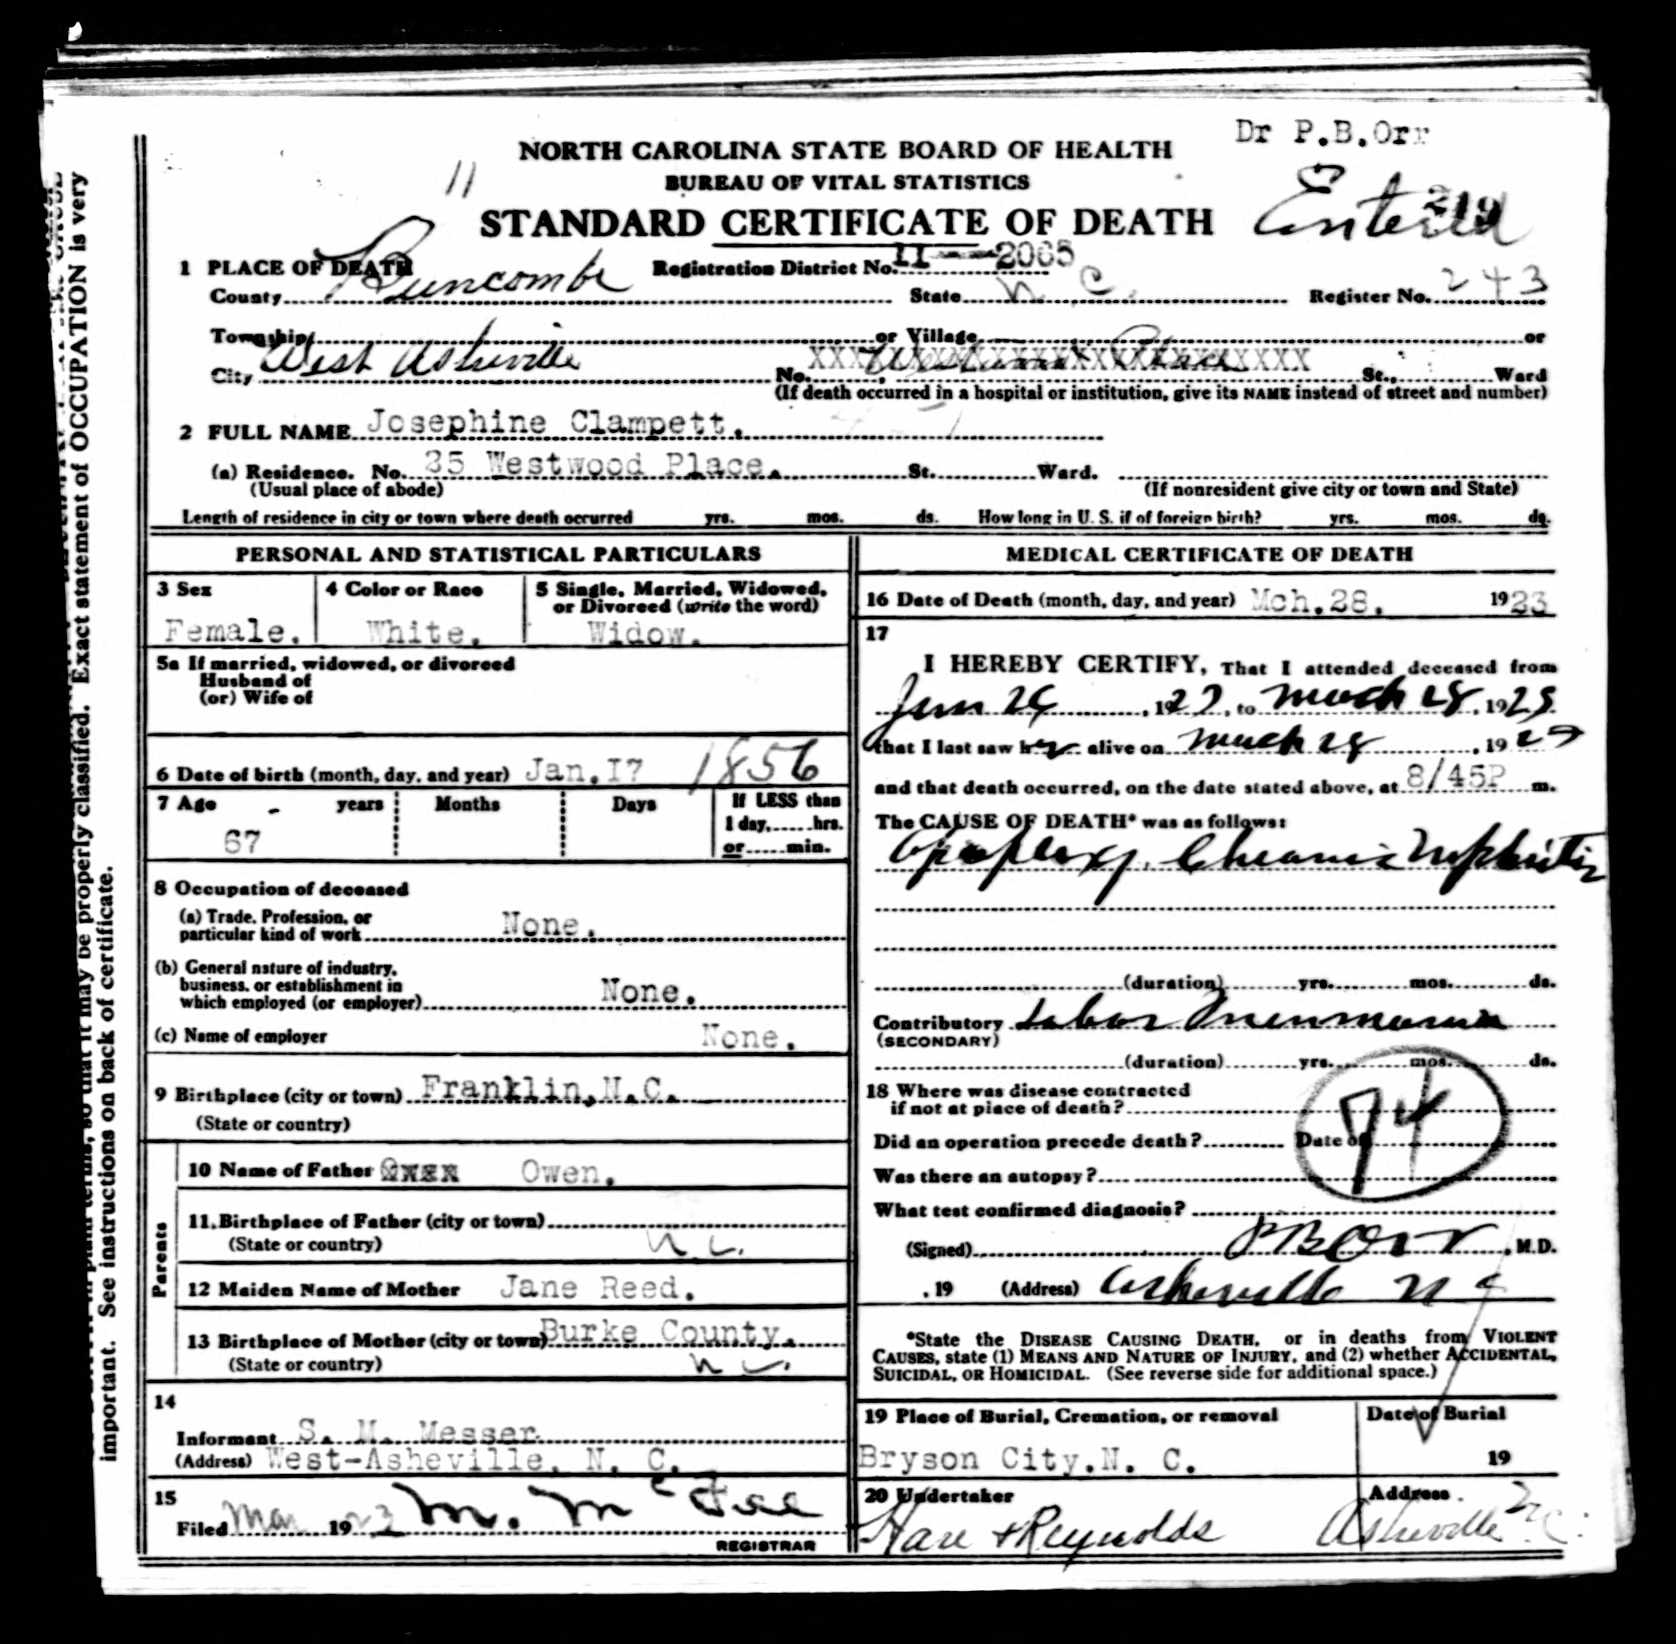 Dr P.B.Orr
NORTH CAROLINA STATE BOARD OF HEALTH
11
BUREAU OF VITAL STATISTICS
STANDARD CERTIFICATE OF DEATH
Entered
219
1 PLACE OF DEATH Registration District No. II--2065
County Buncombe State N C. Register No. 243
Township or Village or
City West Asheville No. XXXXXXXXXXXXXXXXXXXXXXX St., Ward
(If death occurred in a hospital or institution, give its NAME instead of street and number)
2 FULL NAME Josephine Clampett.
(a) Residence. No. 35 Westwood Place. St. Ward.
(Usual place of abode) (If nonresident give city or town and State)
Length of residence in city or town where death occurred yrs. mos. ds. How long in U. S. if of foreign birth? yrs. mos. ds.
PERSONAL AND STATISTICAL PARTICULARS
3 Sex 4 Color or Race 5 Single, Married, Widowed,
or Divorced (write the word)
Female. White. Widow.
5a If married, widowed, or divorced
Husband of
(or) Wife of
6 Date of birth (month, day, and year) Jan.I7 1856
7 Age - years Months Days If LESS than
1 day,......hrs.
67 or......min.
8 Occupation of deceased
(a) Trade, Profession, or
particular kind of work None.
(b) General nature of industry,
business, or establishment in
which employed (or employer) None.
(c) Name of employer None.
9 Birthplace (city or town) Franklin,N.C.
(State or country)
Parents
10 Name of Father Owen.
11. Birthplace of Father (city or town)
(State or country) N C.
12 Maiden Name of Mother Jane Reed.
13 Birthplace of Mother (city or town) Burke County.
(State or country) N C.
14
Informant S. M. Messer
(Address) West-Asheville, N. C.
15
Filed Mar 1923 M. McFee
REGISTRAR
MEDICAL CERTIFICATE OF DEATH
16 Date of Death (month, day, and year) Mch.28. 1923
17
I HEREBY CERTIFY, That I attended deceased from
Jan 26, 1923, to March 28, 1923
that I last saw her alive on March 28, 1923
and that death occurred, on the date stated above, at 8/45P m.
The CAUSE OF DEATH* was as follows:
Apoplexy. Chronic Nephritis
(duration) yrs. mos. ds.
Contributory Lobar Pneumonia
(SECONDARY)
(duration) yrs. mos. ds.
18 Where was disease contracted
if not at place of death?
Did an operation precede death? Date of
74
Was there an autopsy?
What test confirmed diagnosis?
(Signed) P B Orr, M.D.
, 19 (Address) Asheville N C
*State the DISEASE CAUSING DEATH, or in deaths from VIOLENT
CAUSES, state (1) MEANS AND NATURE OF INJURY, and (2) whether ACCIDENTAL,
SUICIDAL, OR HOMICIDAL. (See reverse side for additional space.)
19 Place of Burial, Cremation, or removal Date of Burial
Bryson City.N. C. 19
20 Undertaker Address
Hare & Reynolds Asheville N C.
in plain terms, so that it may be properly classified. Exact statement of OCCUPATION is very
important. See instructions on back of certificate.